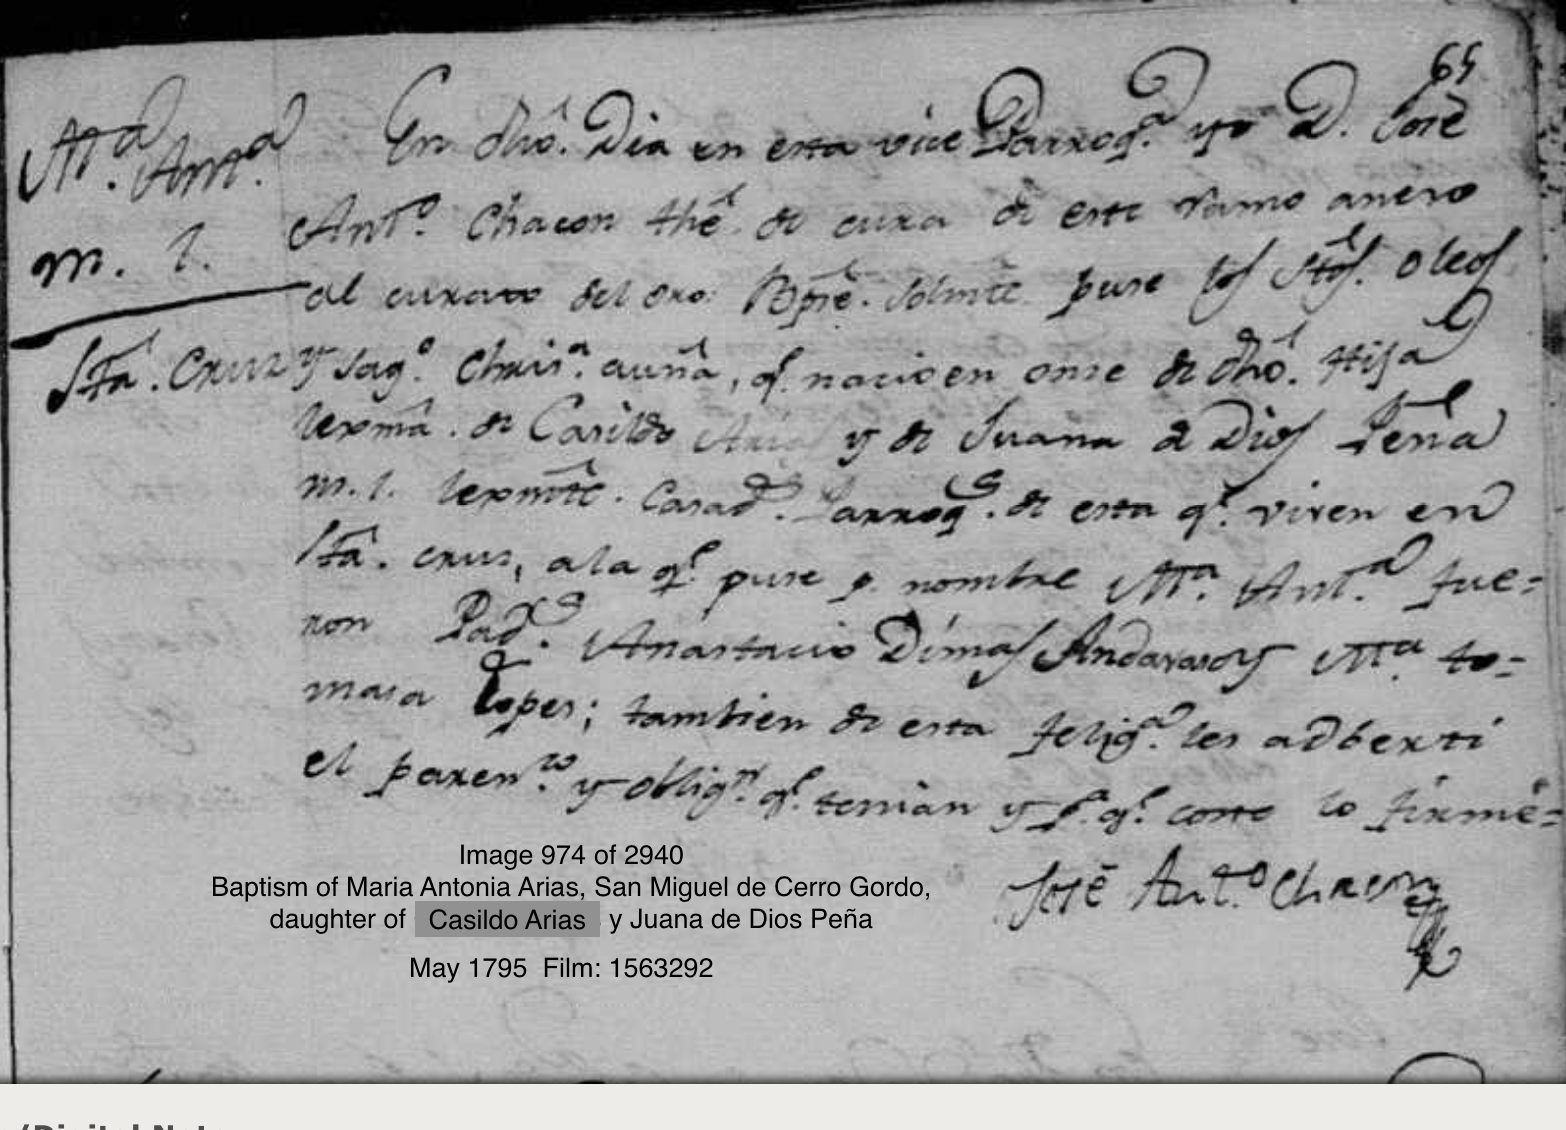 65
Ma. Anta.
m. l.
Sta. Cruz
En dho. Dia en esta vice Parroqa. yo D. José
Anto. Chacon the. de cura de este ramo anexo
al curato del oro puse los Stos. oleos
y Sagdo. a una, q. nacio en onse de dho. Hija
lexma. de Casildo Arias y de Juana de Dios Peña
m. l. lexmte. Casads. Parroqs. de esta qe. viven en
Sta. crus, a la qe. puse p. nombre Ma. Anta. fue=
ron Pads. Anastacio Dimas y Ma. to=
masa Lopes; tambien de esta feliga. les adberti
el parento. y oblign. qe. tenian y pa. qe. conste lo firmé=
José Anto. Chacon
Image 974 of 2940
Baptism of Maria Antonia Arias, San Miguel de Cerro Gordo,
daughter of Casildo Arias y Juana de Dios Peña
May 1795 Film: 1563292